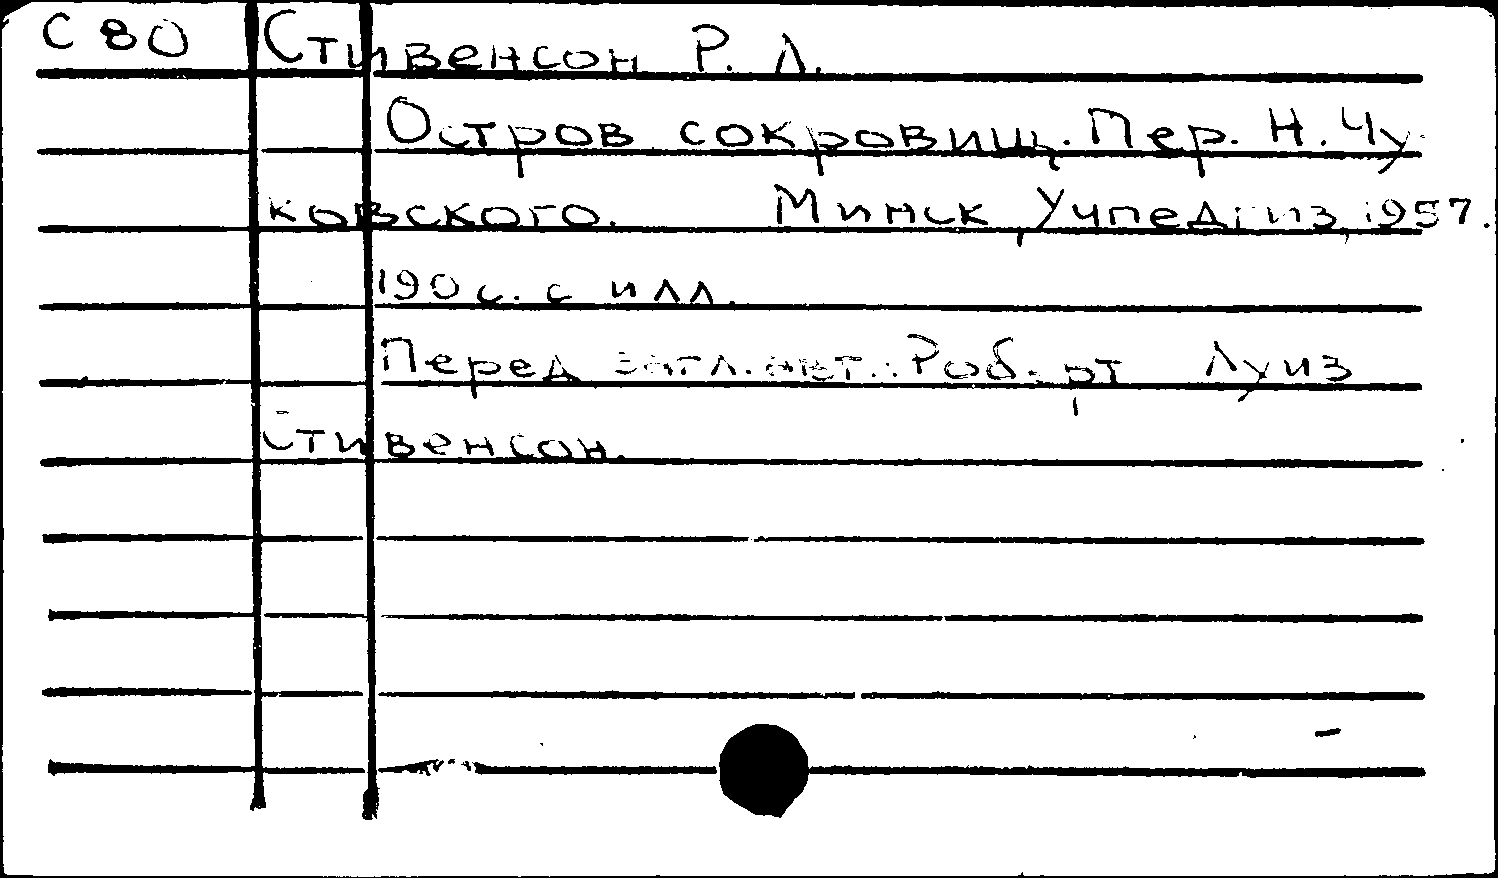 С 80 Стивенсон Р. Л.
Остров сокровищ. Пер. Н. Чу
ковского. Минск, Учпедгиз, 1957.
190 с. с илл.
Перед загл. авт.: Роберт Луиз
Стивенсон.